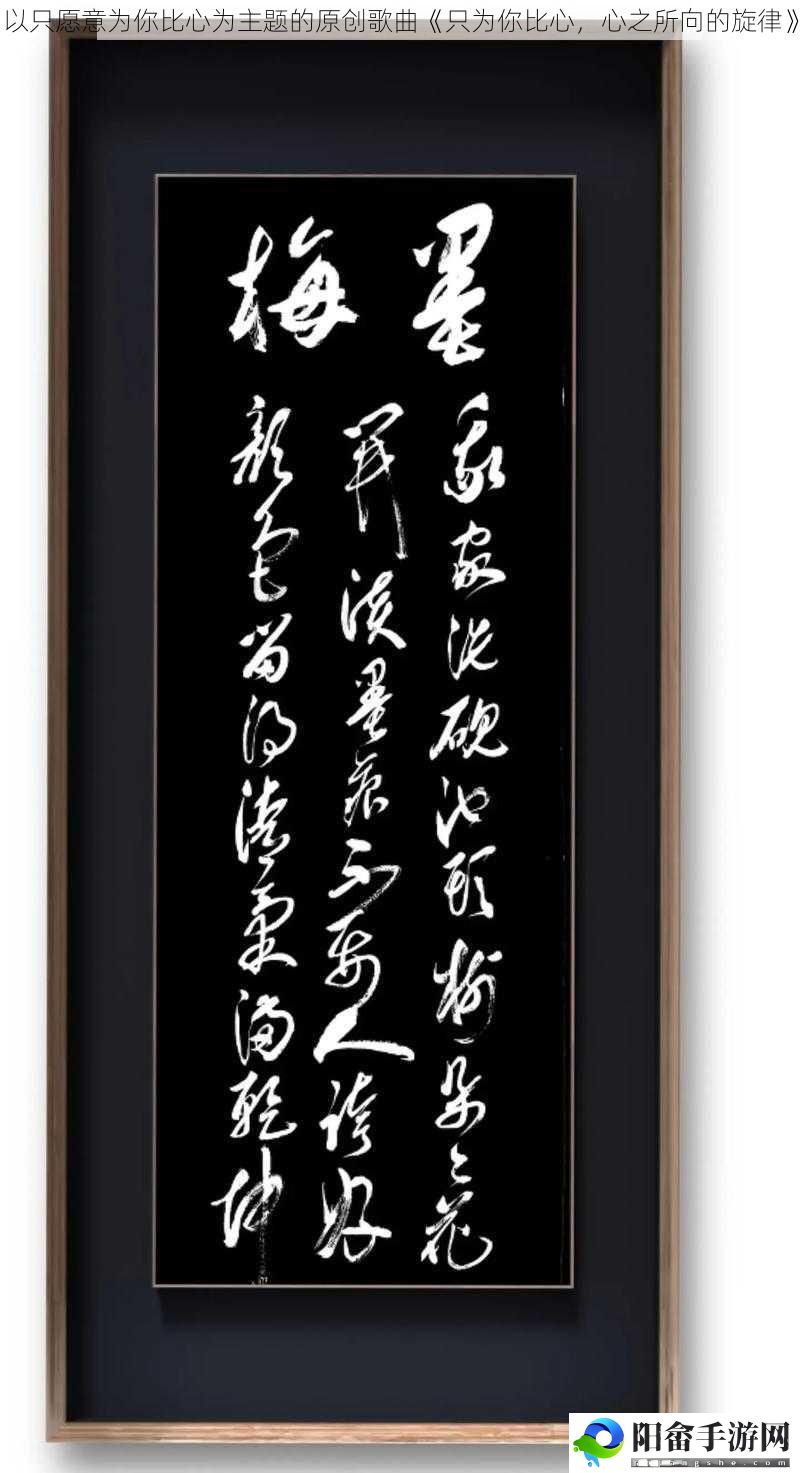 以只愿意为你比心为主题的原创歌曲《只为你比心，心之所向的旋律》
墨梅
我家洗硯池頭樹朵々花
開淡墨痕不要人誇好
顏色留得清氣滿乾坤
阳畲手游网